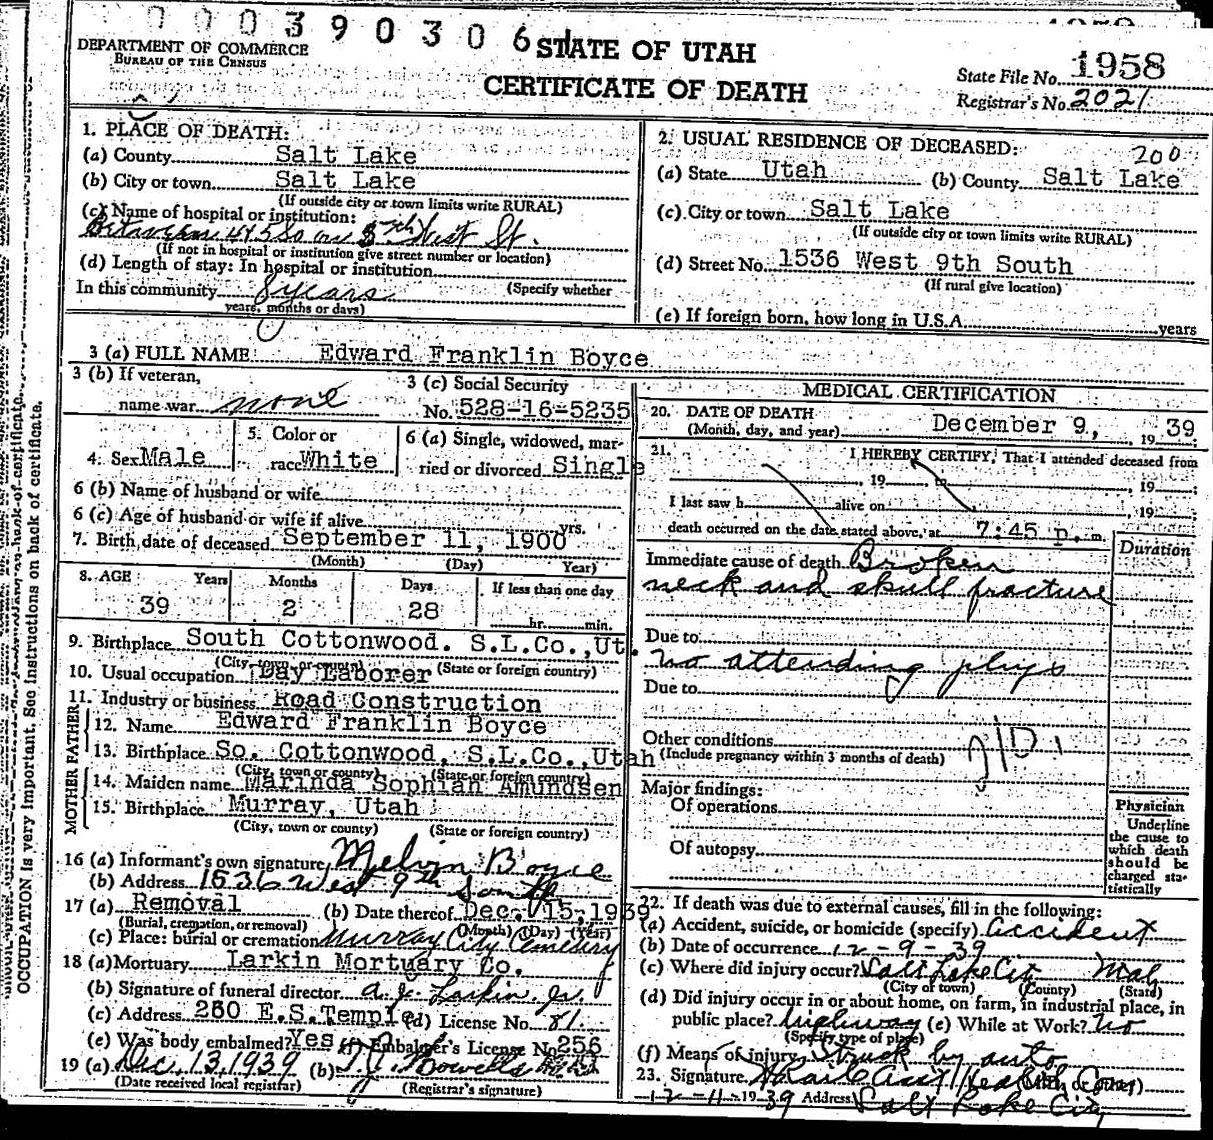 000390306
STATE OF UTAH
CERTIFICATE OF DEATH
DEPARTMENT OF COMMERCE
BUREAU OF THE CENSUS
State File No. 1958
Registrar's No. 2021
1. PLACE OF DEATH:
(a) County Salt Lake
(b) City or town Salt Lake
(If outside city or town limits write RURAL)
(c) Name of hospital or institution:
Between 4 & 5 So on 5th West St.
(If not in hospital or institution give street number or location)
(d) Length of stay: In hospital or institution
In this community 8 years (Specify whether
years, months or days)
2. USUAL RESIDENCE OF DECEASED:
200
(a) State Utah (b) County Salt Lake
(c) City or town Salt Lake
(If outside city or town limits write RURAL)
(d) Street No. 1536 West 9th South
(If rural give location)
(e) If foreign born, how long in U.S.A. years
3 (a) FULL NAME: Edward Franklin Boyce
3 (b) If veteran,
name war none
3 (c) Social Security
No. 528-16-5235
4. Sex Male
5. Color or
race White
6 (a) Single, widowed, mar-
ried or divorced Single
6 (b) Name of husband or wife
6 (c) Age of husband or wife if alive yrs.
7. Birth date of deceased September 11, 1900
(Month) (Day) Year)
8. AGE Years Months Days If less than one day
39 2 28 hr. min.
9. Birthplace South Cottonwood. S.L.Co., Ut.
(City, town or county) (State or foreign country)
10. Usual occupation Day Laborer
11. Industry or business Road Construction
FATHER
12. Name Edward Franklin Boyce
13. Birthplace So. Cottonwood, S.L.Co., Utah
(City, town or county) (State or foreign country)
MOTHER
14. Maiden name Marinda Sophian Amundsen
15. Birthplace Murray, Utah
(City, town or county) (State or foreign country)
16 (a) Informant's own signature Melvin Boyce
(b) Address 1536 West 9th South
17 (a) Removal (b) Date thereof Dec. 15, 1939
(Burial, cremation, or removal) (Month) (Day) (Year)
(c) Place: burial or cremation Murray City Cemetery
18 (a) Mortuary Larkin Mortuary Co.
(b) Signature of funeral director A. J. Larkin Jr.
(c) Address 260 E.S.Temple (d) License No. 81
(e) Was body embalmed? Yes (f) Embalmer's License No. 256
19 (a) Dec. 13, 1939 (b)
(Date received local registrar) (Registrar's signature)
MEDICAL CERTIFICATION
20. DATE OF DEATH
(Month, day, and year) December 9, 19 39
21. I HEREBY CERTIFY, That I attended deceased from
, 19 , to , 19 ;
I last saw h alive on , 19 ;
death occurred on the date stated above, at 7:45 p. m.
Duration
Immediate cause of death Broken
neck and skull fracture
Due to
no attending phys
Due to
Other conditions
(Include pregnancy within 3 months of death)
Major findings:
Of operations
Of autopsy
Physician
Underline
the cause to
which death
should be
charged sta-
tistically
22. If death was due to external causes, fill in the following:
(a) Accident, suicide, or homicide (specify) Accident
(b) Date of occurrence 12-9-39
(c) Where did injury occur? Salt Lake City
(City or town) (County) (State)
(d) Did injury occur in or about home, on farm, in industrial place, in
public place? highway (e) While at Work? no
(Specify type of place)
(f) Means of injury Struck by auto
23. Signature
12-11-1939 Address Salt Lake City
OCCUPATION is very important. See instructions on back of certificate.